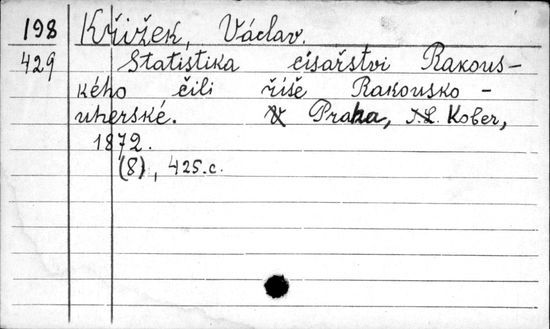 198 Křižek, Václav.
429 Statistika císařství Rakous-
kého čili říše Rakousko -
uherské. V Praha, I.L. Kober,
1872.
(8), 425.c.